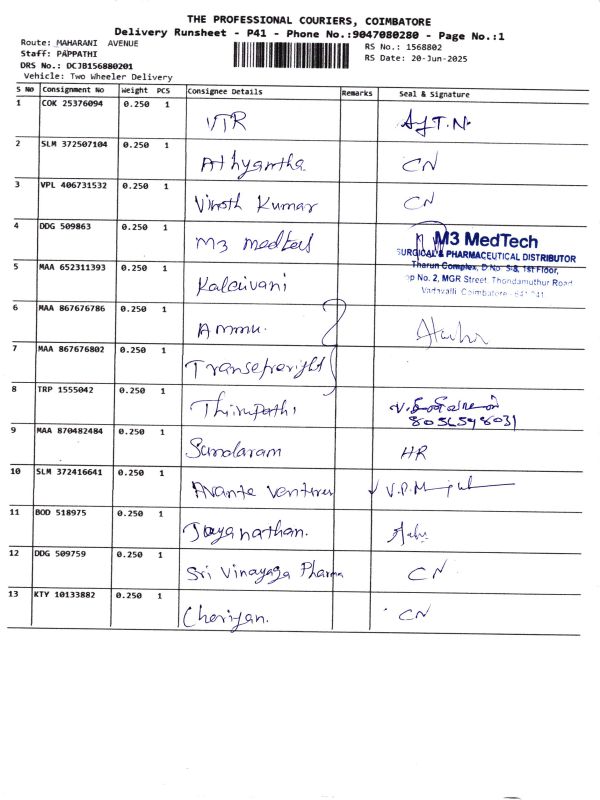 THE PROFESSIONAL COURIERS, COIMBATORE
Delivery Runsheet - P41 - Phone No.:9047080280 - Page No.:1
Route: MAHARANI AVENUE
RS No.: 1568802
Staff: PAPPATHI
RS Date: 20-Jun-2025
DRS No.: DCJB156880201
Vehicle: Two Wheeler Delivery
S No Consignment No Weight PCS Consignee Details Remarks Seal & Signature
1 COK 25376094 0.250 1 VTR
2 SLM 372507104 0.250 1 Athyantha CN
3 VPL 406731532 0.250 1 Vinoth Kumar CN
4 DDG 509863 0.250 1 M3 medtech
M3 MedTech
SURGICAL & PHARMACEUTICAL DISTRIBUTOR
Tharun Complex, D.No. 5-8, 1st Floor,
op No. 2, MGR Street, Thondamuthur Road
Vadavalli, Coimbatore - 641 041
5 MAA 652311393 0.250 1 Kalaivani
6 MAA 867676786 0.250 1 Ammu.
7 MAA 867676802 0.250 1
8 TRP 1555042 0.250 1 Thirupathi
8056548031
9 MAA 870482484 0.250 1 Sundaram HR
10 SLM 372416641 0.250 1 Avante Ventures
11 BOD 518975 0.250 1 Jayanathan.
12 DDG 509759 0.250 1 Sri Vinayaga Pharma CN
13 KTY 10133882 0.250 1 Cheriyan. CN